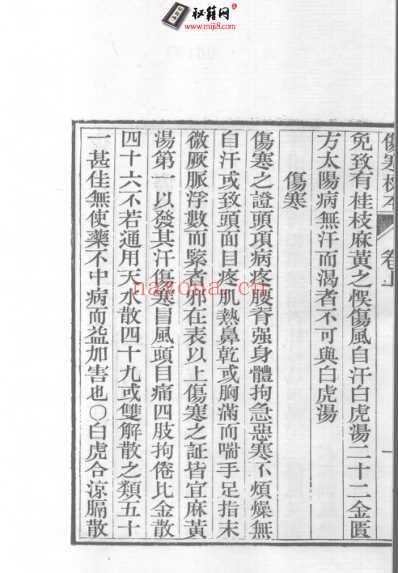 秘籍网
www.miji8.com
傷寒標本 卷上
免致有桂枝麻黃之悞傷風自汗白虎湯二十二金匱
方太陽病無汗而渴者不可與白虎湯
傷寒
傷寒之證頭項病疼腰脊强身體拘急惡寒不煩燥無
自汗或致頭面目疼肌熱鼻乾或胸滿而喘手足指末
微厥脈浮數而緊者邪在表以上傷寒之証皆宜麻黃
湯第一以發其汗傷寒冒風頭目痛四肢拘倦比金散
四十六不若通用天水散四十九或雙解散之類五十
一甚佳無使藥不中病而益加害也〇白虎合涼膈散
www.nayona.cn